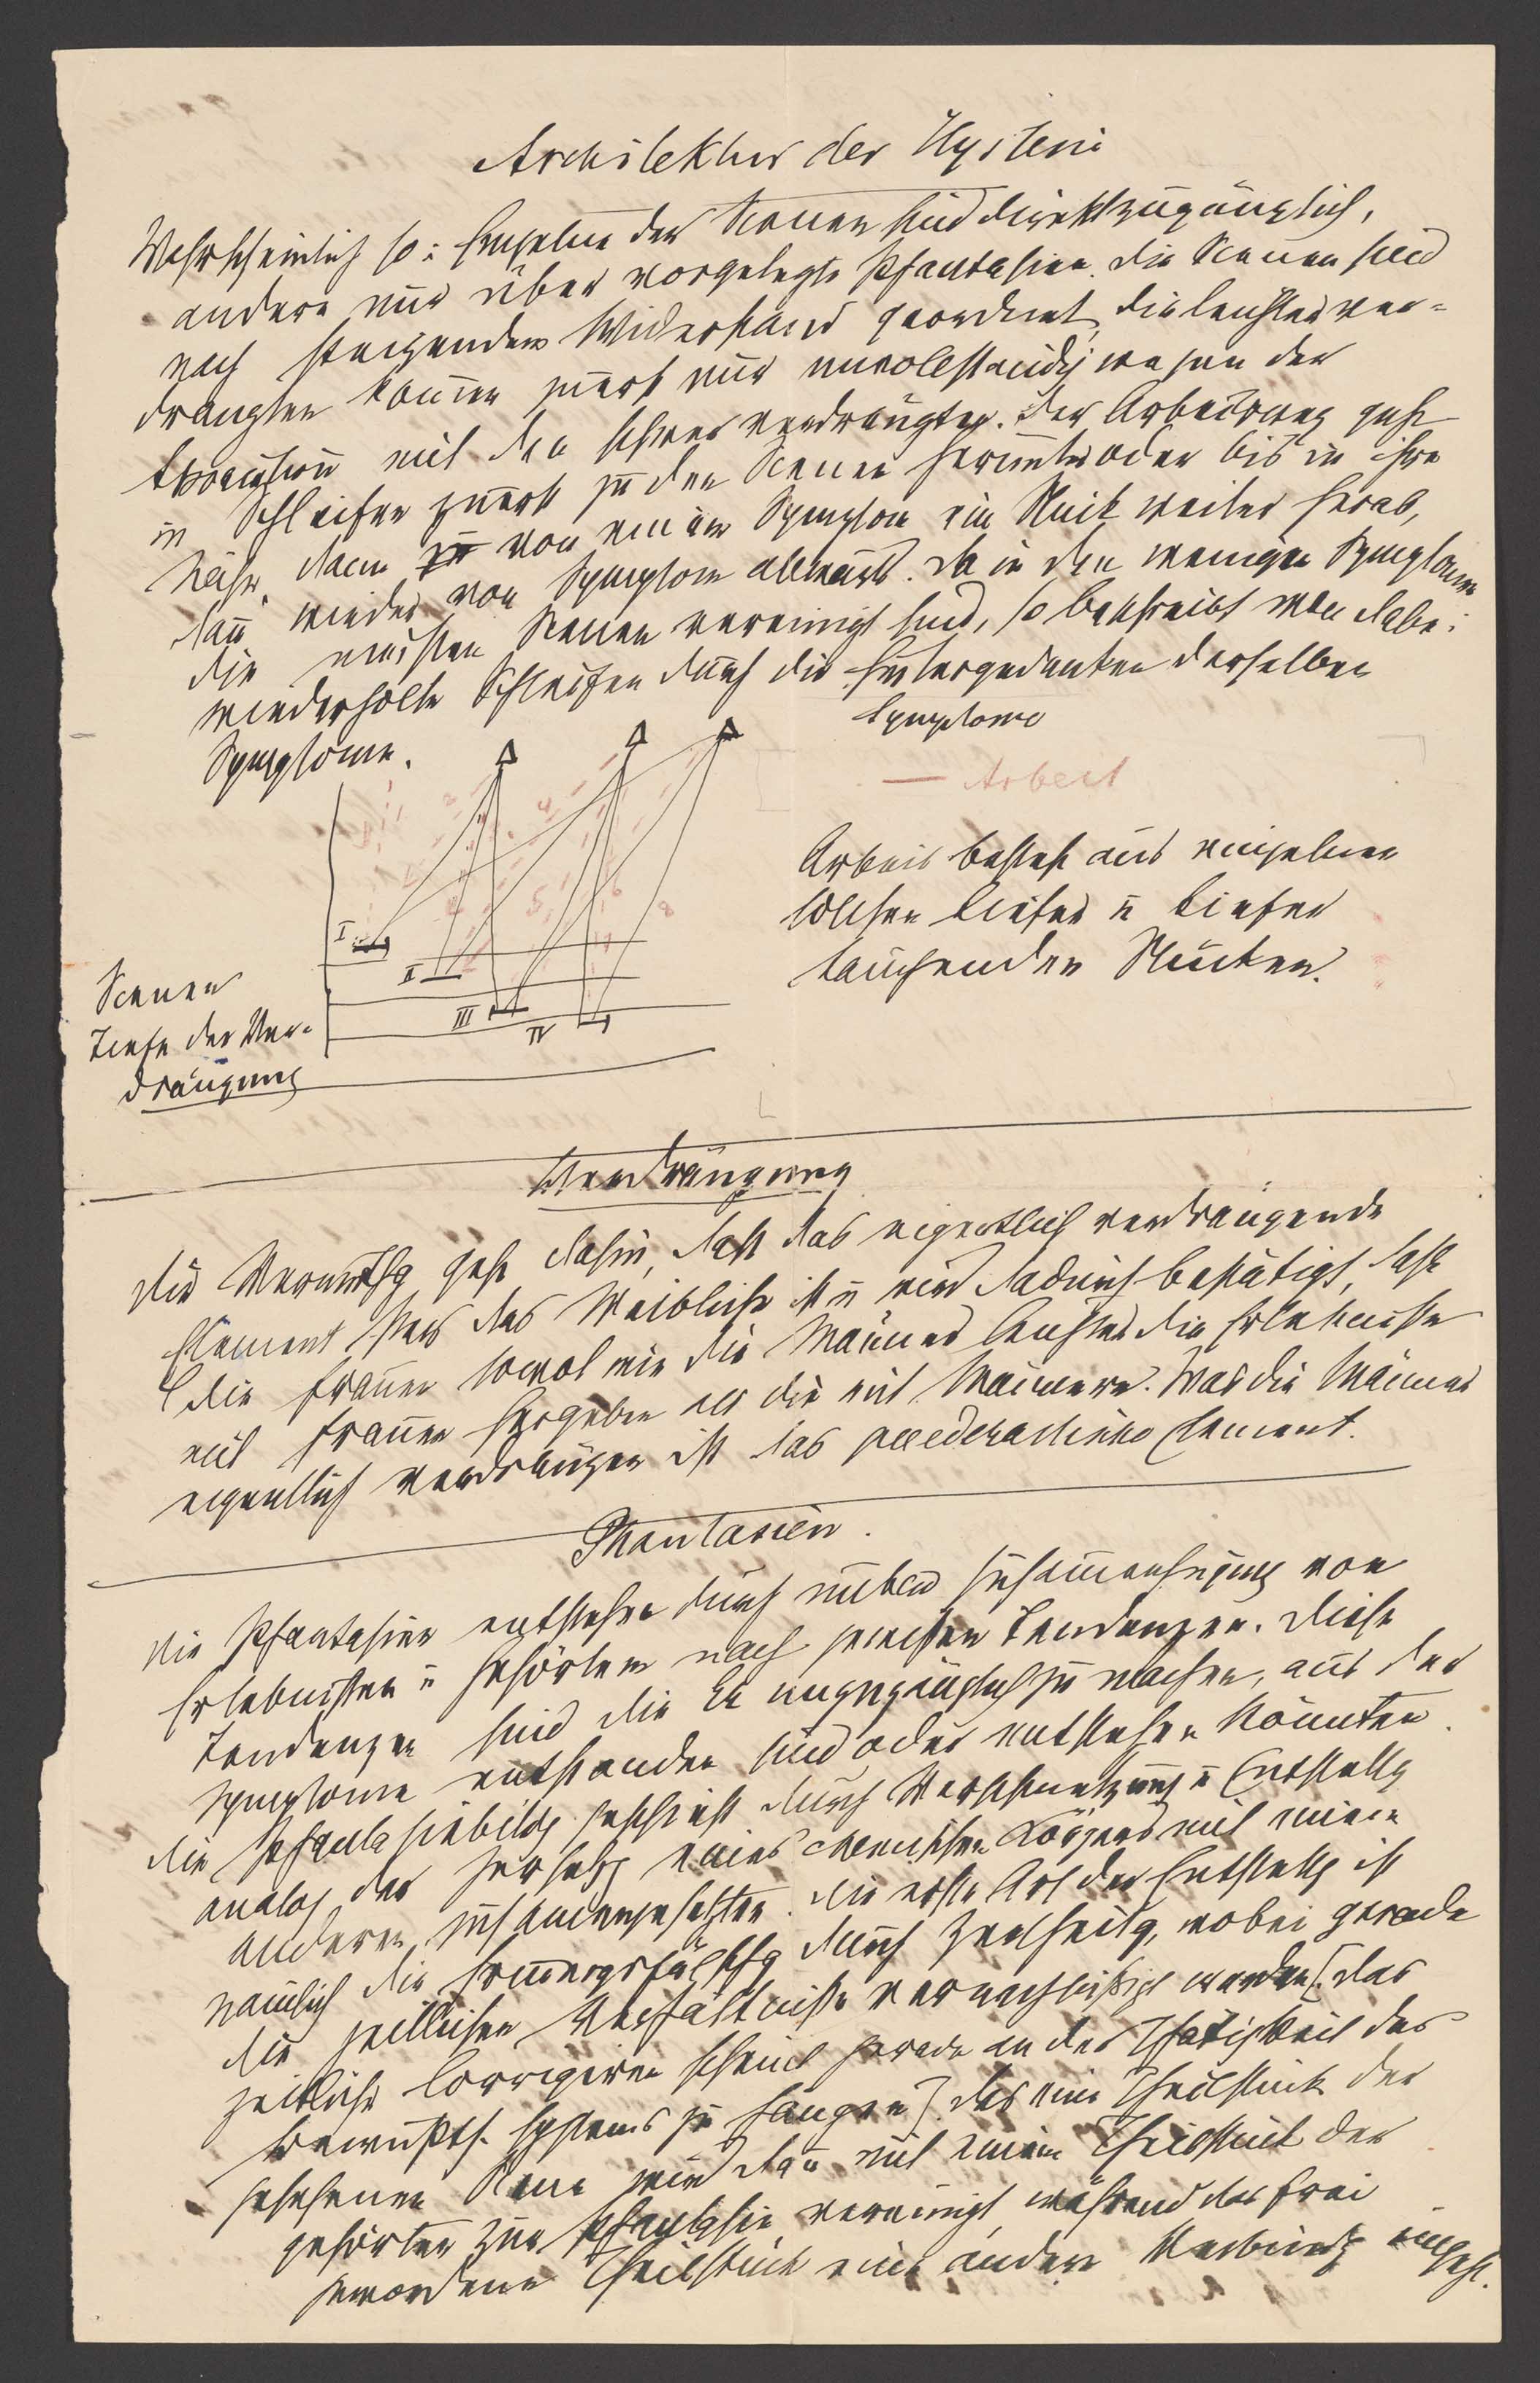 Architektur der Hysterie
Wahrscheinlich so: Einzelne der Scenen sind direkt zugänglich,
andere nur über vorgelegte Phantasien. Die Scenen sind
nach steigendem Widerstand geordnet, die leichter ver-
drängten kommen zuerst nur unvollständig wegen der
Association mit den schwer verdrängten. Der Arbeitsweg geht
in Schleifen zuerst zu den Scenen herunter oder bis in ihre
Nähe, dann von einem Symptom ein Stück weiter herab,
dann wieder vom Symptom abwärts. Da in den wenigen Symptomen
die meisten Scenen vereinigt sind, so beschreibt man dabei
wiederholte Schleifen durch die Hintergedanken derselben
Symptome.
Symptome
— Arbeit
Arbeit besteht aus einzelnen
solchen tiefer u tiefer
tauchenden Stücken.
I
II
III
IV
Scenen
Tiefe der Ver-
drängung
Verdrängung
Die Vermuthg geht dahin, daß das eigentlich verdrängende
Element stets das Weibliche ist u wird dadurch bestätigt, daß
die Frauen sowol wie die Männer leichter die Erlebnisse
mit Frauen hergeben als die mit Männern. Was die Männer
eigentlich verdrängen ist das paederastische Element.
Phantasien.
Die Phantasien entstehen durch unbew Zusammenfügung von
Erlebnissen u Gehörtem nach gewissen Tendenzen. Diese
Tendenzen sind die Er unzugänglich zu machen, aus der
Symptome entstanden sind oder entstehen könnten.
Die Phantasiebildg geschieht durch Verschmelzung u Entstellg
analog der Zersetzg eines chemischen Körpers mit einem
anderen zusammengesetzten. Die erste Art der Entstellg ist
nämlich die Erinnergsfälschg durch Zertheilg, wobei gerade
die zeitlichen Verhältniße vernachläßigt werden. [Das
zeitliche Corrigiren scheint gerade an der Thätigkeit des
Bewußts. systems zu hängen]. Das eine Theilstück der
gesehenen Scene wird dann mit einem Theilstück der
gehörten zur Phantasie vereinigt, während das frei
gewordene Theilstück eine andere Verbindg eingeht.